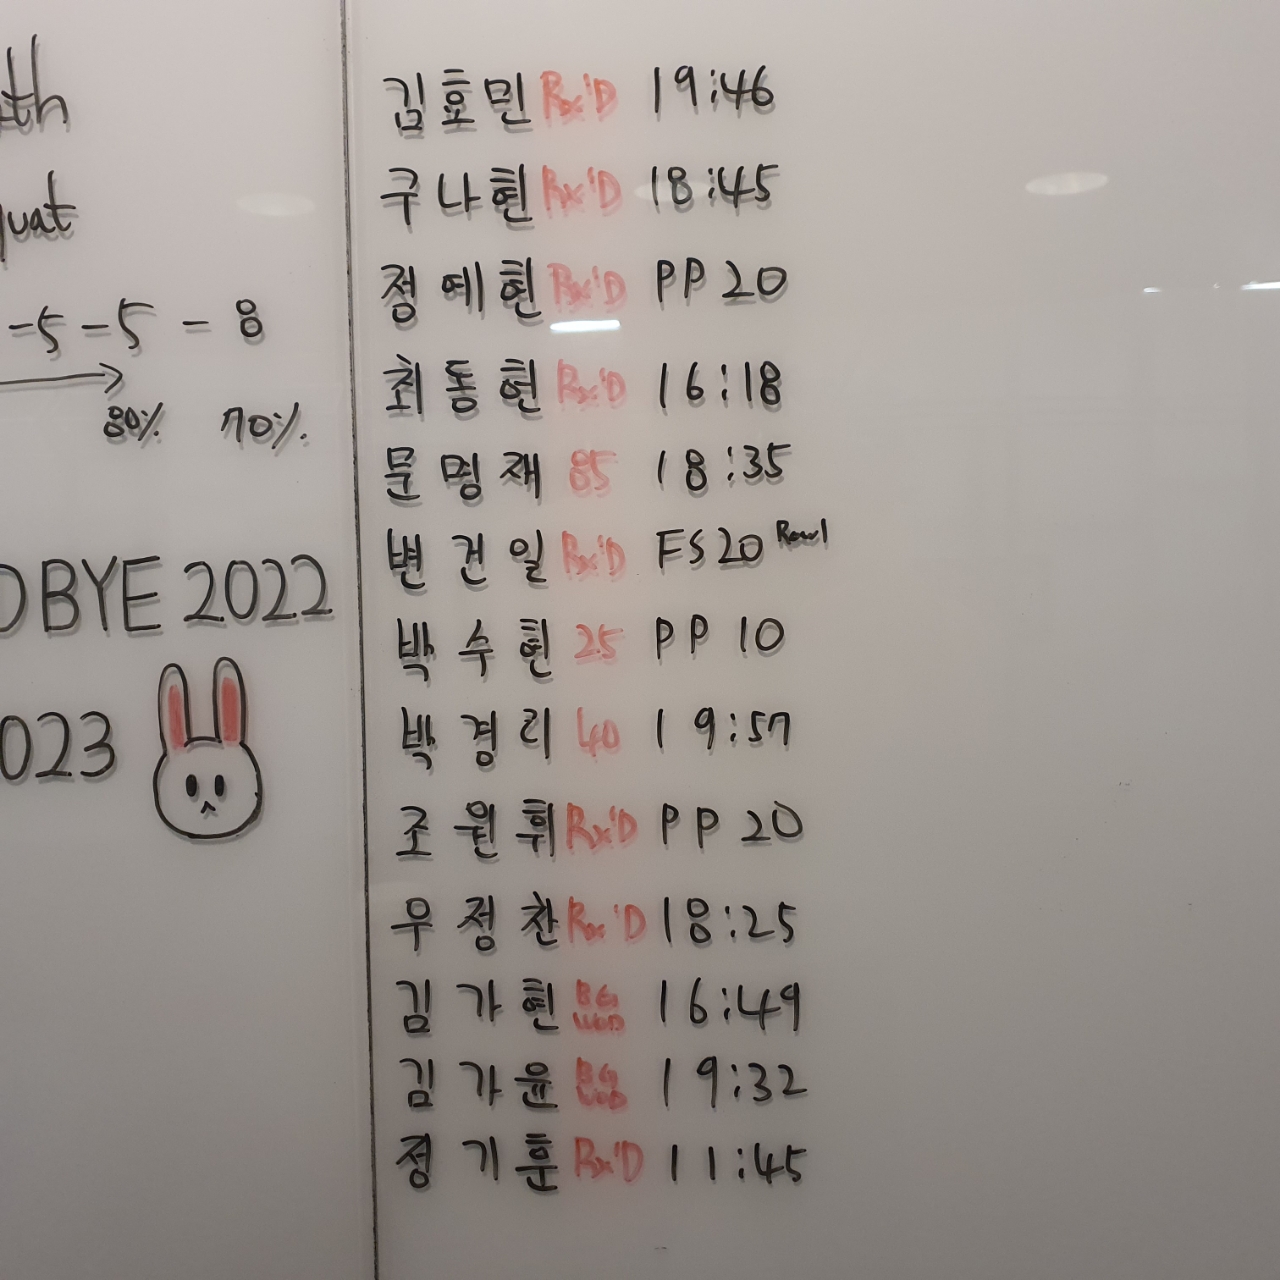 th
quat
-5-5-8
80% 70%.
DBYE 2022
023
김효민 Rx'D 19:46
구나현 Rx'D 18:45
정예현 Rx'D PP 20
최동현 Rx'D 16:18
문명재 85 18:35
변건일 Rx'D FS 20
박수현 25 PP 10
박경리 40 19:57
조원휘 Rx'D PP 20
우정찬 Rx'D 18:25
김가현 BG WOD 16:49
김가윤 BG WOD 19:32
정기훈 Rx'D 11:45